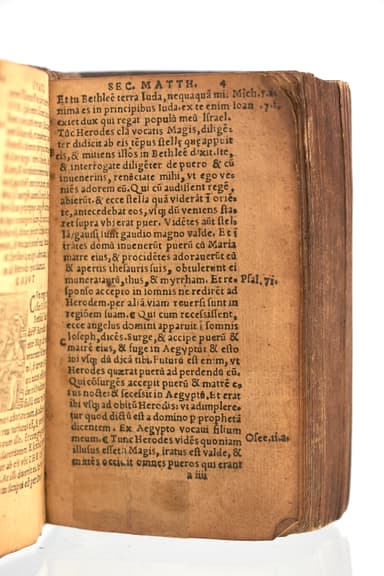 SEC. MATTH. 4
Et tu Bethleẽ terra Iuda, nequaquã mi: Mich.5.a.
nima es in principibus Iuda. ex te enim Ioan .7.f.
exiet dux qui regat populũ meũ Israel.
Tũc Herodes clã vocatis Magis, diligẽ:
ter didicit ab eis tẽpus stellę quę apparuit
eis, & mittens illos in Bethleẽ dixit. Ite,
& interrogate diligẽter de puero & cũ
inueneritis, renũciate mihi, vt ego ve:
niẽs adorem eũ. Qui cũ audissent regẽ,
abierũt. & ecce stella quã viderãt ĩ oriẽ
te, antecedebat eos, vsq; dũ veniens sta:
ret supra vbi erat puer. Vidẽtes aũt stel:
lã, gauisi sunt gaudio magno valde. Et ĩ
trãtes domũ inuenerũt puerũ cũ Maria
matre eius, & procidẽtes adorauerũt eũ
& apertis thesauris suis, obtulerunt ei
munera: aurũ, thus, & myrrham. Et re: Psal. 71.
sponso accepto in somnis ne redirẽt ad
Herodem. per aliã viam reuersi sunt in
regiõem suam. ¶ Qui cum recessissent,
ecce angelus domini apparuit ĩ somnis
Ioseph, dicẽs. Surge, & accipe puerũ &
C matrẽ eius, & fuge in Aegyptũ: & esto
ibi vsq; dũ dicã tibi. Futurũ est enim, vt
Herodes quærat puerũ ad perdendũ eũ.
Qui cõsurgẽs accepit puerũ & matrẽ e:
ius nocte: & secessit in Aegyptũ. Et erat
ibi vsq; ad obitũ Herodis: vt adimplere:
tur quod dictũ est a domino p prophetã
dicentem. Ex Aegypto vocaui filium
meum. ¶ Tunc Herodes vidẽs quoniam Osee.11.a.
illusus esset a Magis, iratus est valde, &
mittẽs occidit omnes pueros qui erant
a iiii